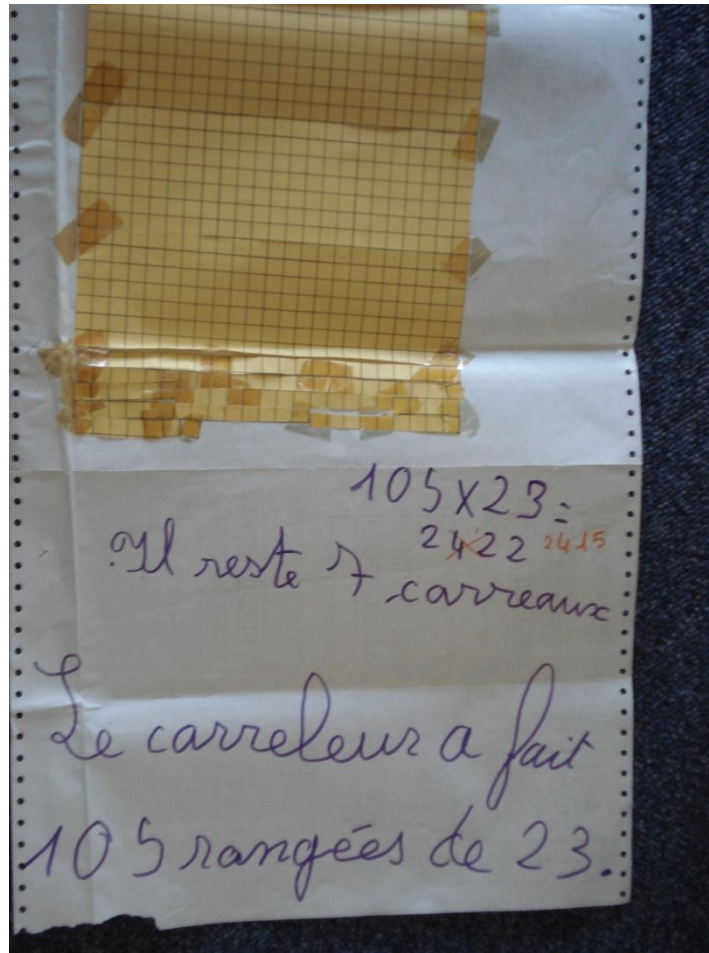 105x23=
2422 2415
Il reste 7 carreaux
Le carreleur a fait
105 rangées de 23.